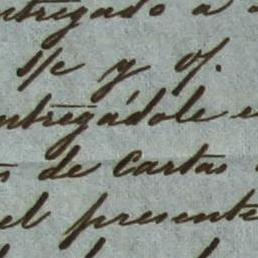 ntregado a
s/c y o/.
ntregádole e
s de Cartas
el presente